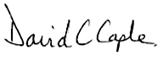 David C Caple